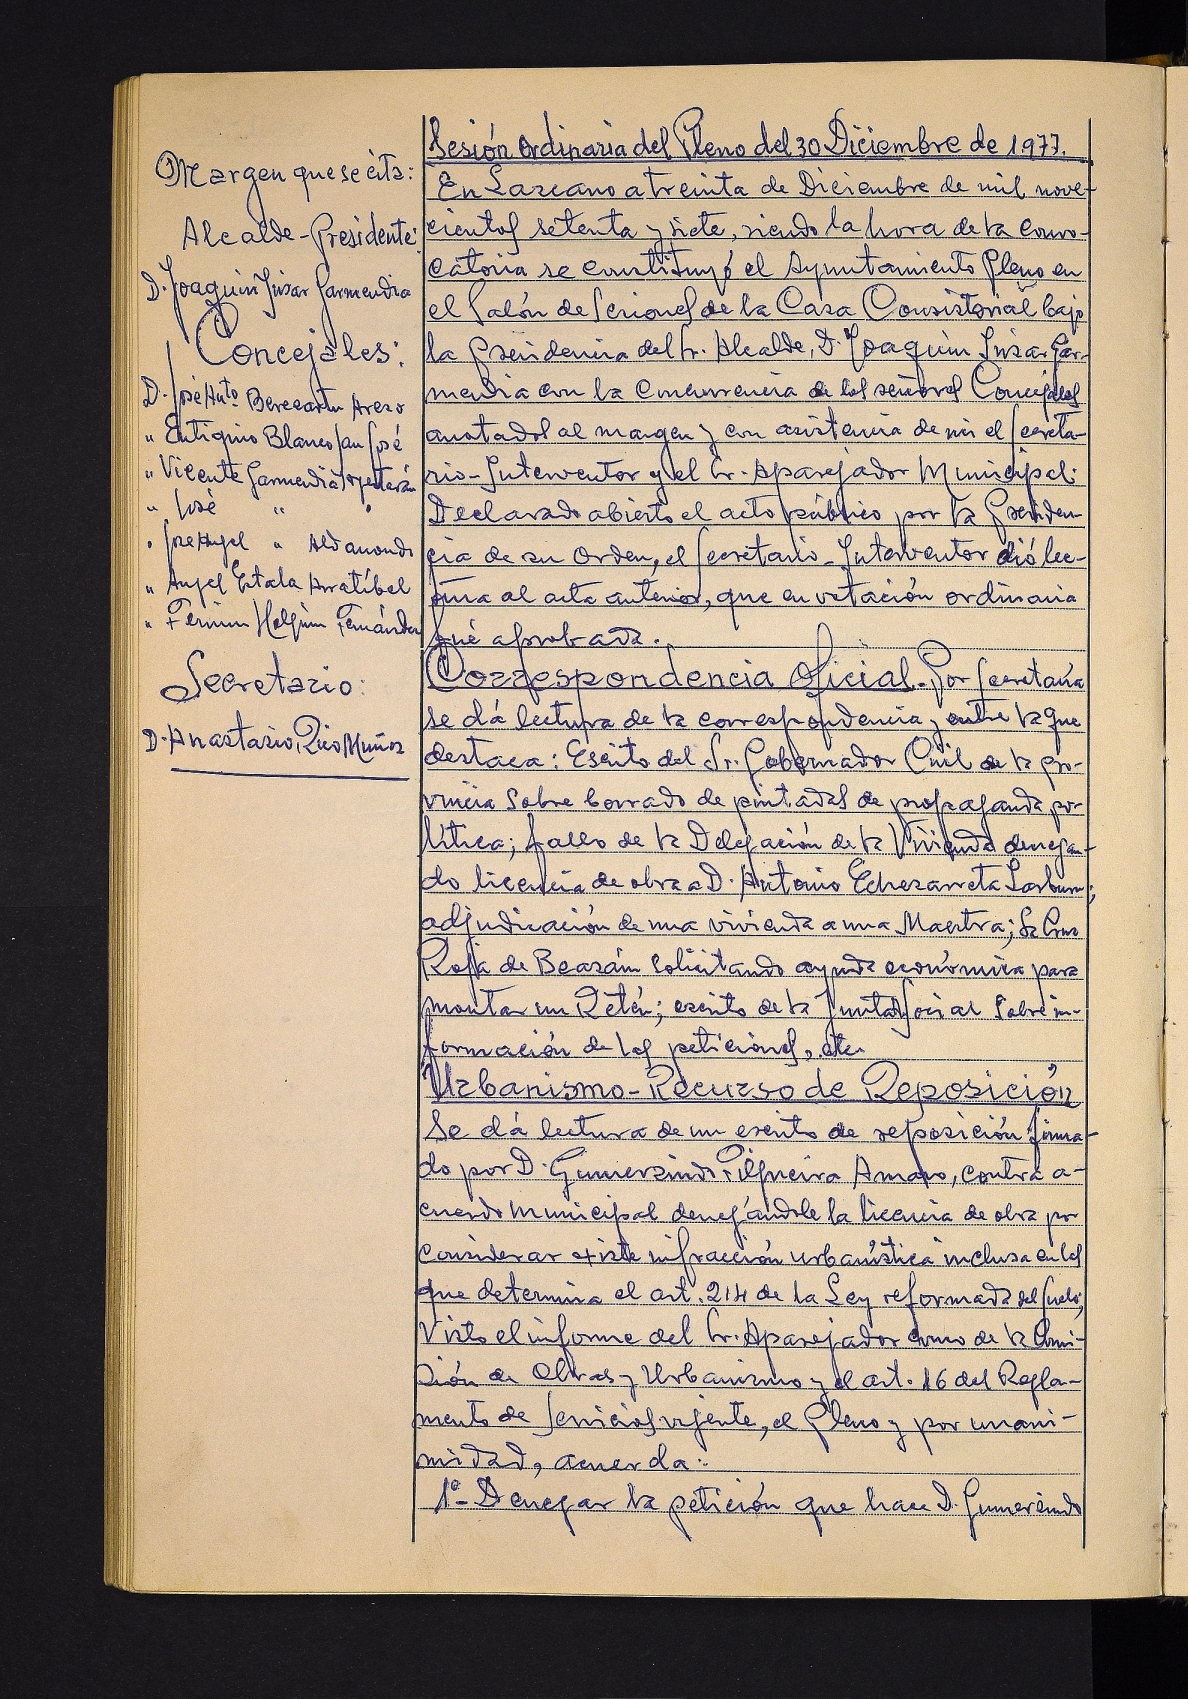 Margen que se cita:
Alcalde-Presidente:
D. Joaquin Garmendia
Concejales:
D. José Antº Berecartu
" Eutiquio Blanco San José
" Vicente Garmendia
" José " "
" José Angel " Aldanondo
" Angel Estala Arratíbel
" Fermin Holguin Fernández
Secretario:
D. Anastasio Rico Muñoz
Sesión Ordinaria del Pleno del 30 Diciembre de 1977.
En Lazcano a treinta de Diciembre de mil nove-
cientos setenta y siete, siendo la hora de la convo-
catoria se constituyó el Ayuntamiento Pleno en
el Salón de Sesiones de la Casa Consistorial bajo
la Presidencia del Sr. Alcalde, D. Joaquin Gar-
mendia con la concurrencia de los señores Concejales
anotados al margen y con asistencia de mi el Secreta-
rio-Interventor y el Sr. Aparejador Municipal.
Declarado abierto el acto público por la Presiden-
cia de su Orden, el Secretario-Interventor dió lec-
tura al acta anterior, que en votación ordinaria
fué aprobada.
Correspondencia Oficial.-Por Secretaría
se dá lectura de la correspondencia y entre la que
destaca: Escrito del Sr. Gobernador Civil de la pro-
vincia sobre borrado de pintadas de propaganda po-
lítica; fallo de la Delegación de la Vivienda denegan-
do licencia de obra a D. Antonio Echezarreta
adjudicación de una vivienda a una Maestra; La Cruz
Roja de Beasáin solicitando ayuda económica para
montar un Retén; escrito de la Junta Social sobre in-
formación de las peticiones, etc.
Urbanismo-Recurso de Reposición
Se dá lectura de un escrito de reposición firma-
do por D. Gumersindo Filgueira Amaro, contra a-
cuerdo municipal denegándole la licencia de obra por
considerar existe infracción urbanística inclusa en las
que determina el art. 214 de la Ley reformada del Suelo,
Visto el informe del Sr. Aparejador como de la Comi-
sión de Obras y Urbanismo y el art. 16 del Regla-
mento de Servicios vigente, el Pleno y por unani-
midad, acuerda:
1º- Denegar la petición que hace D. Gumersindo